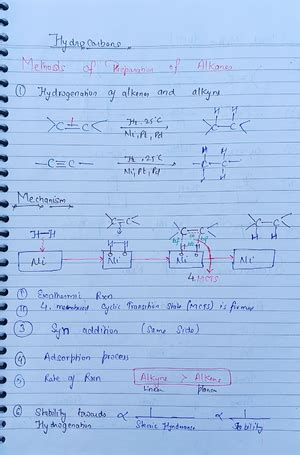 Hydrocarbons
Methods of Preparation of Alkanes
① Hydrogenation of alkenes and alkyne
>C=C< H₂, 25°C Ni, Pt, Pd H H -C-C-
-C≡C- H₂, 25°C Ni, Pt, Pd -C-C-
Mechanism
H-H >C=C< >C=C< H H
Ni Ni H H Ni Ni
4 MCTS
① Exothermic Rxn
② 4. membered Cyclic Transition State (MCTS) is formed
③ Syn addition (Same Side)
④ Adsorption process
⑤ Rate of Rxn Alkyne > Alkene
Linear Planar
⑥ Stability towards Hydrogenation ∝ 1/Steric Hindrance ∝ 1/Stability